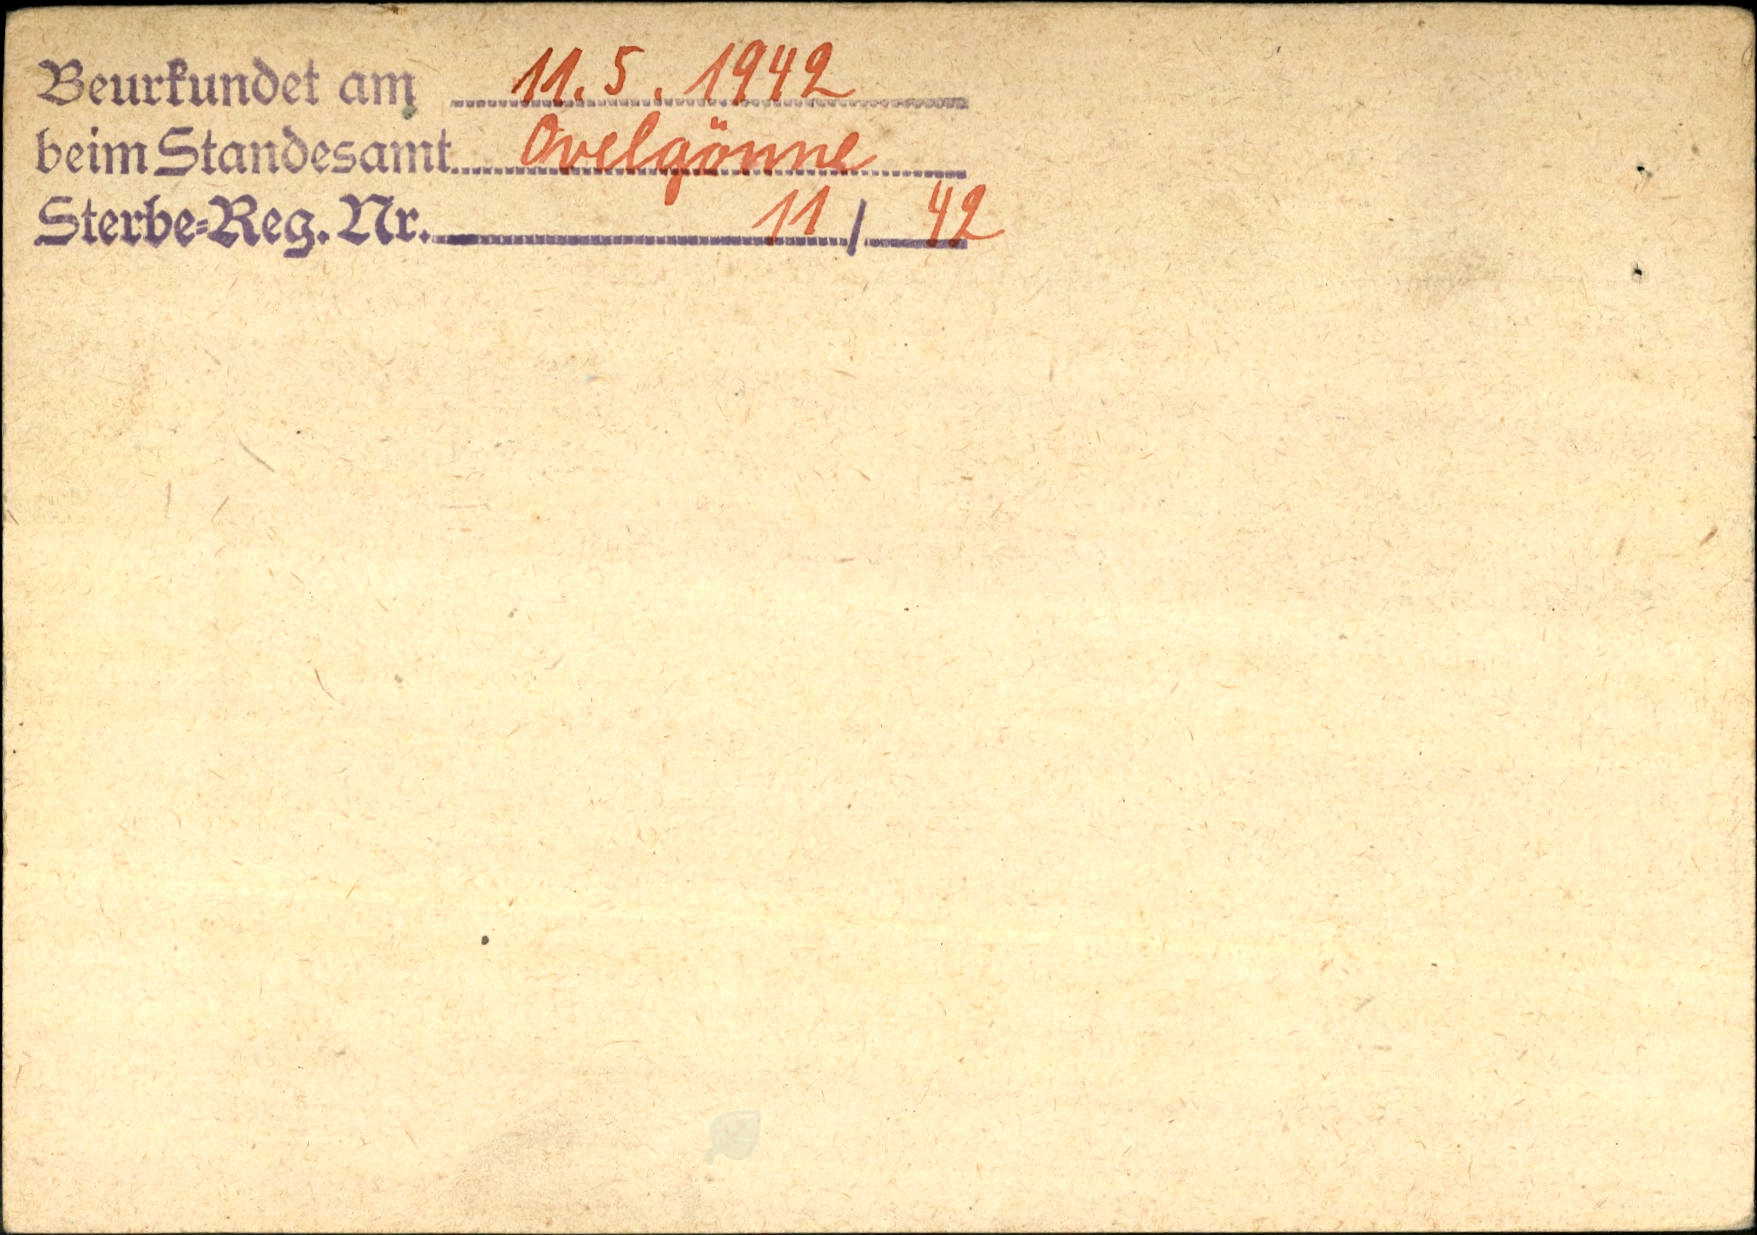 Beurkundet am 11. 5. 1942
beim Standesamt Ovelgönne
Sterbe-Reg. Nr. 11 / 42